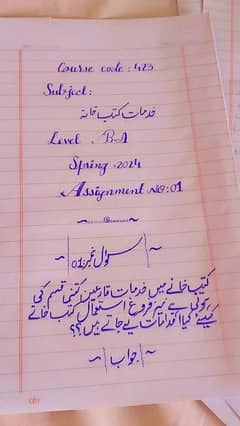 Course code: 423
Subject:
خدمات کتب خانہ
Level . B.A
Spring .2024
Assignment No:01
سوال نمبر 01
کتب خانے میں خدمات قارئین کتنی قسم کی
ہوتی ہے نیز فروغ استعمال کتب خانے
کیلئے کیا اقدامات کیے جاتے ہیں؟؟
جواب